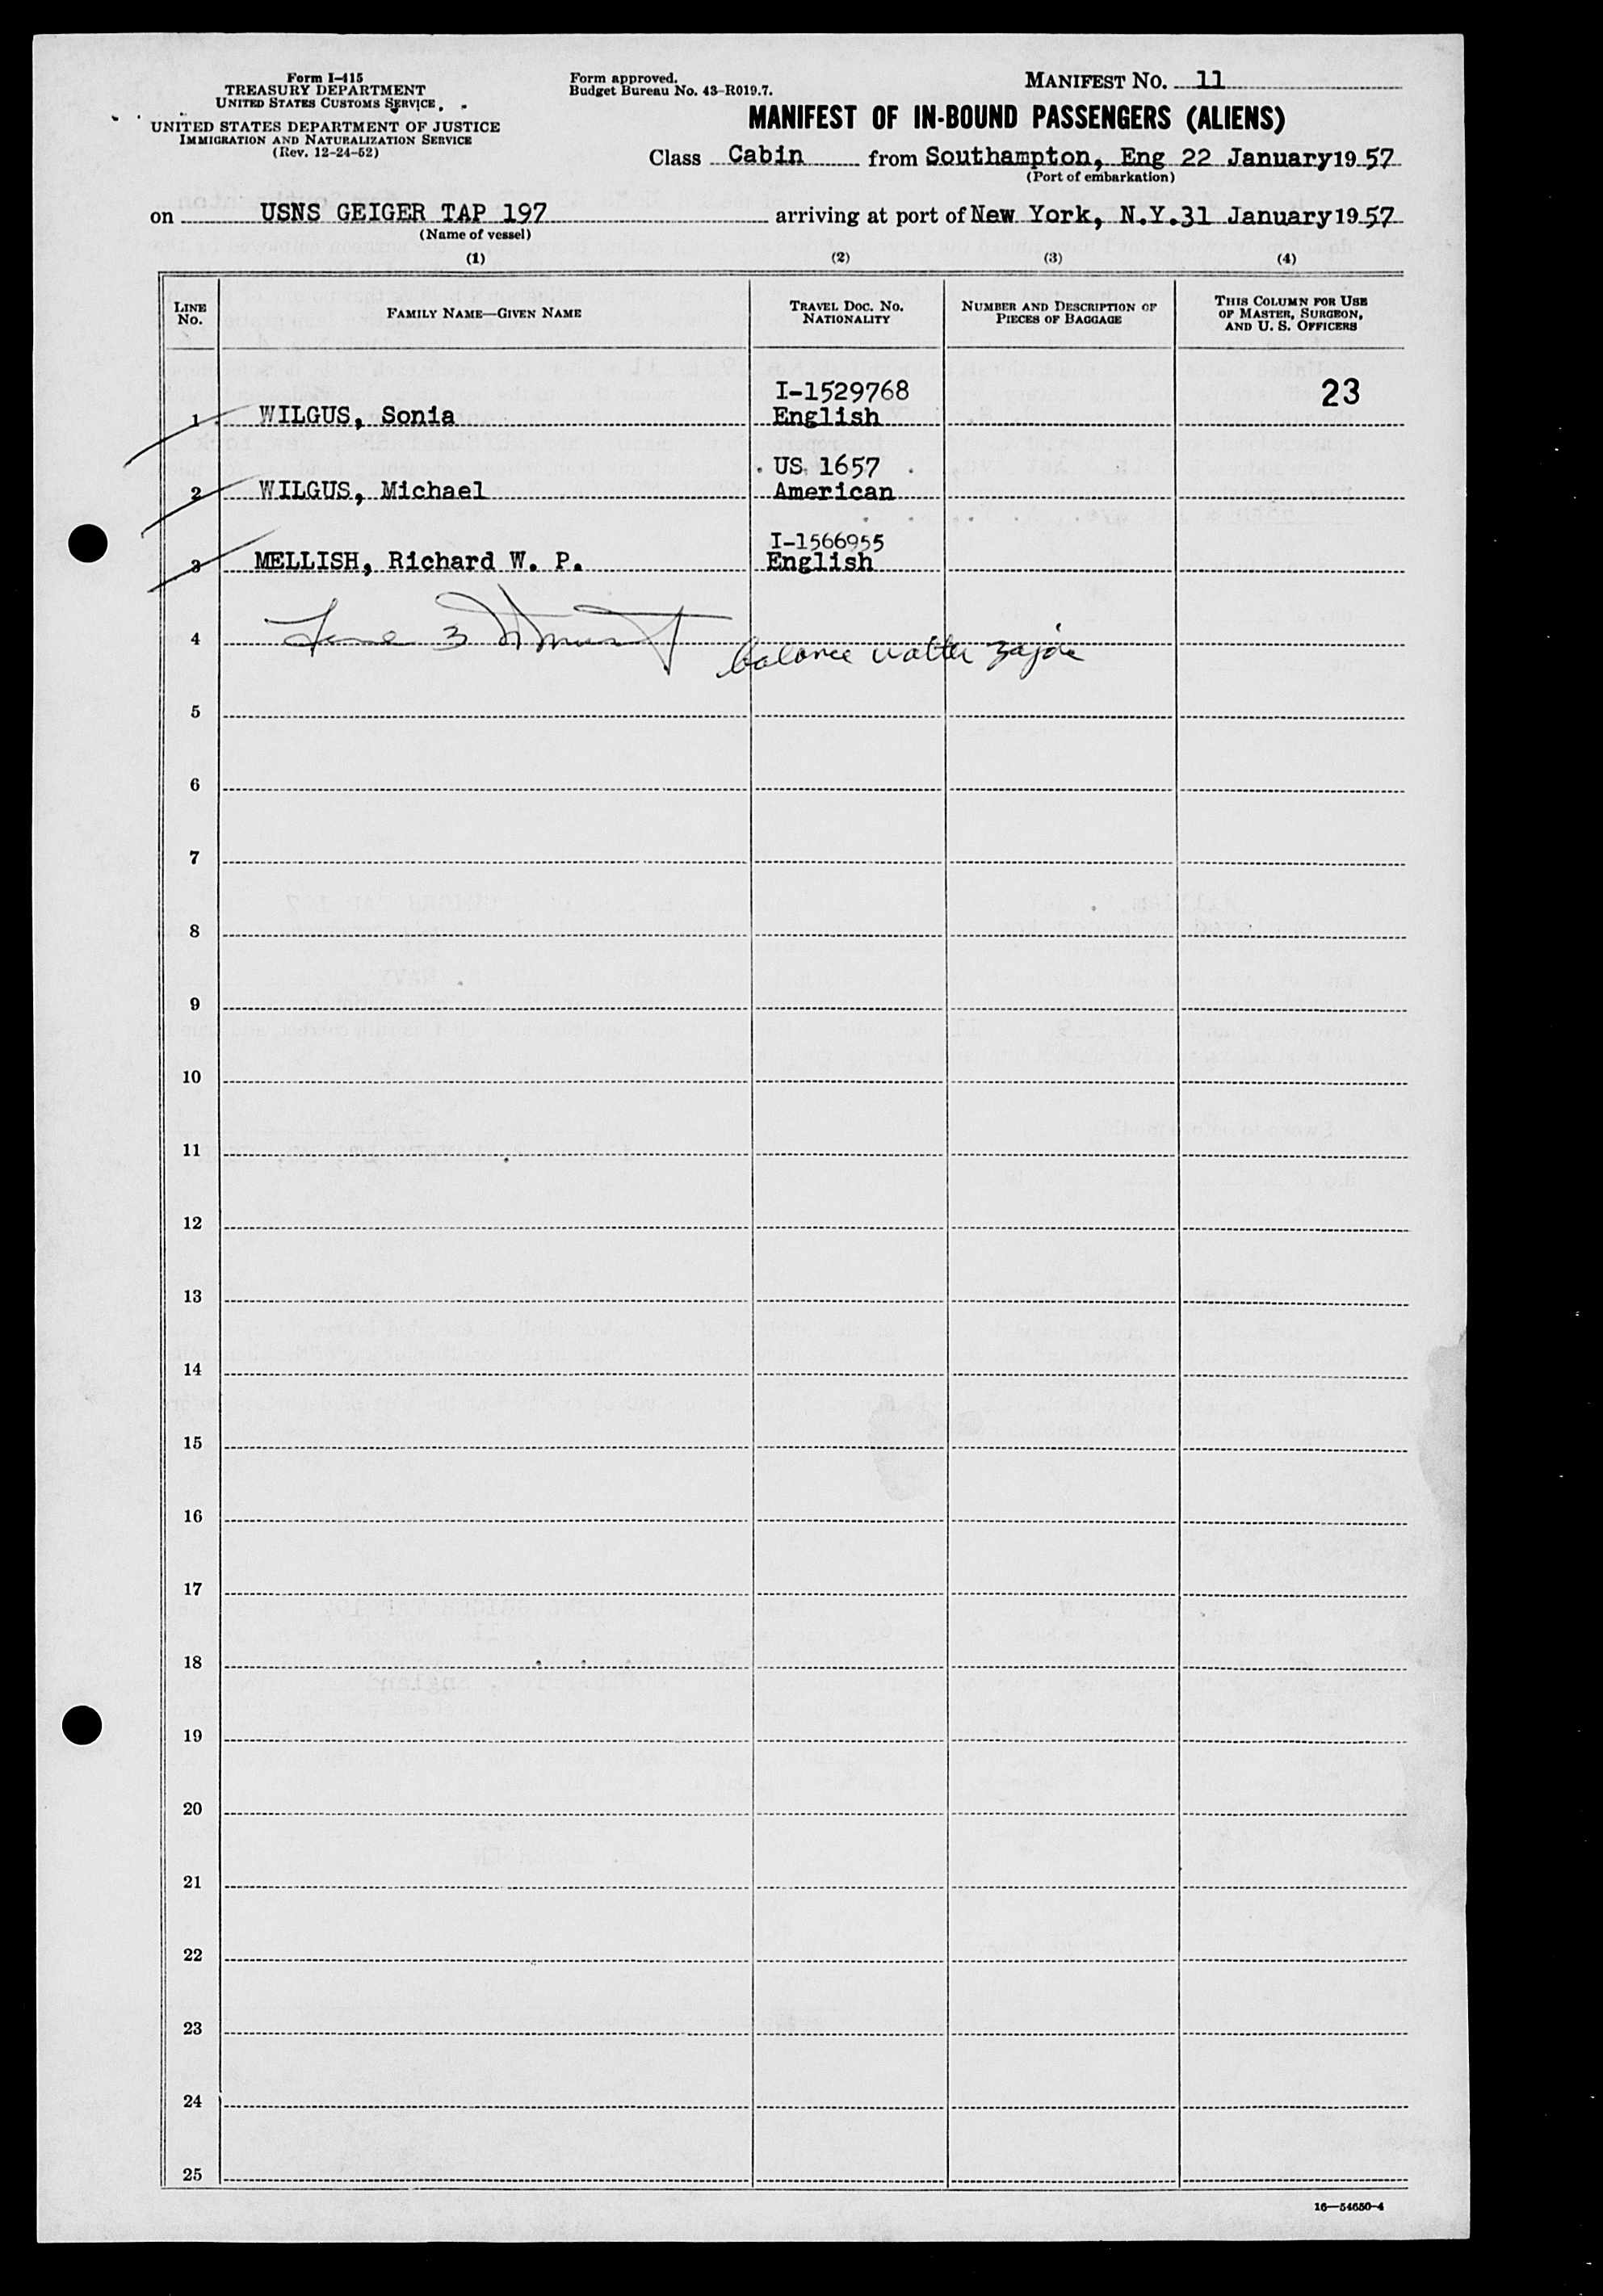 Form I-415
TREASURY DEPARTMENT
UNITED STATES CUSTOMS SERVICE
UNITED STATES DEPARTMENT OF JUSTICE
IMMIGRATION AND NATURALIZATION SERVICE
(Rev. 12-24-52)
Form approved.
Budget Bureau No. 43-R019.7.
MANIFEST NO. 11
MANIFEST OF IN-BOUND PASSENGERS (ALIENS)
Class Cabin from Southampton, Eng 22 January 1957
(Port of embarkation)
on USNS GEIGER TAP 197 arriving at port of New York, N.Y. 31 January 1957
(Name of vessel)
(1) (2) (3) (4)
LINE NO. FAMILY NAME—GIVEN NAME TRAVEL DOC. NO. NATIONALITY NUMBER AND DESCRIPTION OF PIECES OF BAGGAGE THIS COLUMN FOR USE OF MASTER, SURGEON, AND U. S. OFFICERS
I-1529768 23
1 WILGUS, Sonia English
US. 1657
2 WILGUS, Michael American
I-1566955
3 MELLISH, Richard W. P. English
4 3
balance
5
6
7
8
9
10
11
12
13
14
15
16
17
18
19
20
21
22
23
24
25
16—54650-4